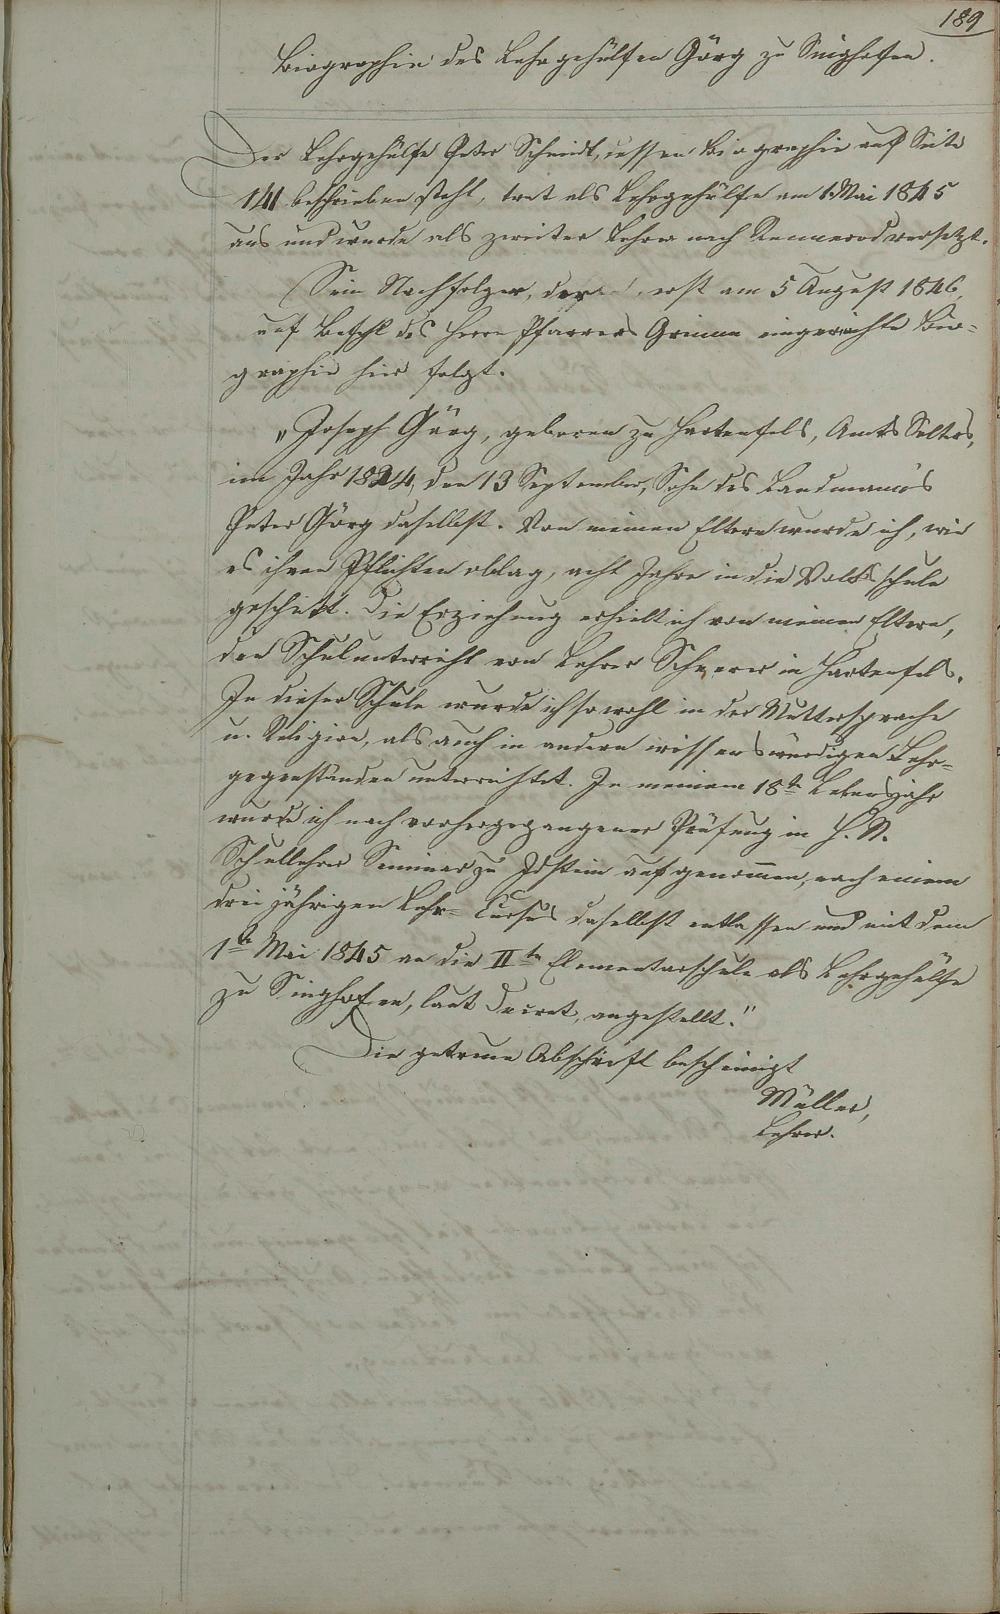 189
Biographie des Lehrgehülfen Görg zu Singhofen.
Der Lehrgehülfe Peter Schmidt, dessen Biographie auf Seite
141 beschrieben steht, trat als Lehrgehülfe am 1. Mai 1845
aus und wurde als zweiter Lehrer nach Rennerod versetzt.
Sein Nachfolger, der erst am 5 August 1846,
auf Befehl des Herrn Pfarrers Grimm eingereichte Bio-
graphie hier folgt.
„Joseph Görg, geboren zu Hartenfels, Amts Selters,
im Jahr 1824, den 13 September, Sohn des Landmann's
Peter Görg daselbst. Von meinen Eltern wurde ich, wie
es ihren Pflichten oblag, acht Jahre in die Volksschule
geschickt. Die Erziehung erhielt ich von meinen Eltern,
den Schulunterricht von Lehrer Scherer in Hartenfels.
In dieser Schule wurde ich sowohl in der Muttersprache
u. Religion, als auch in andern wissenswürdigen Lehr-
gegenständen unterrichtet. In meinem 18tn Lebensjahr
wurde ich nach vorhergegangener Prüfung in H. N.
Schullehrer Seminar zu Idstein aufgenommen, nach einem
dreijährigen Lehr-Cursus daselbst entlassen und mit dem
1tn Mai 1845 an die IIte Elementarschule als Lehrgehülfe
zu Singhofen, laut Decret, angestellt."
Die getreue Abschrift bescheinigt
Müller,
Lehrer.